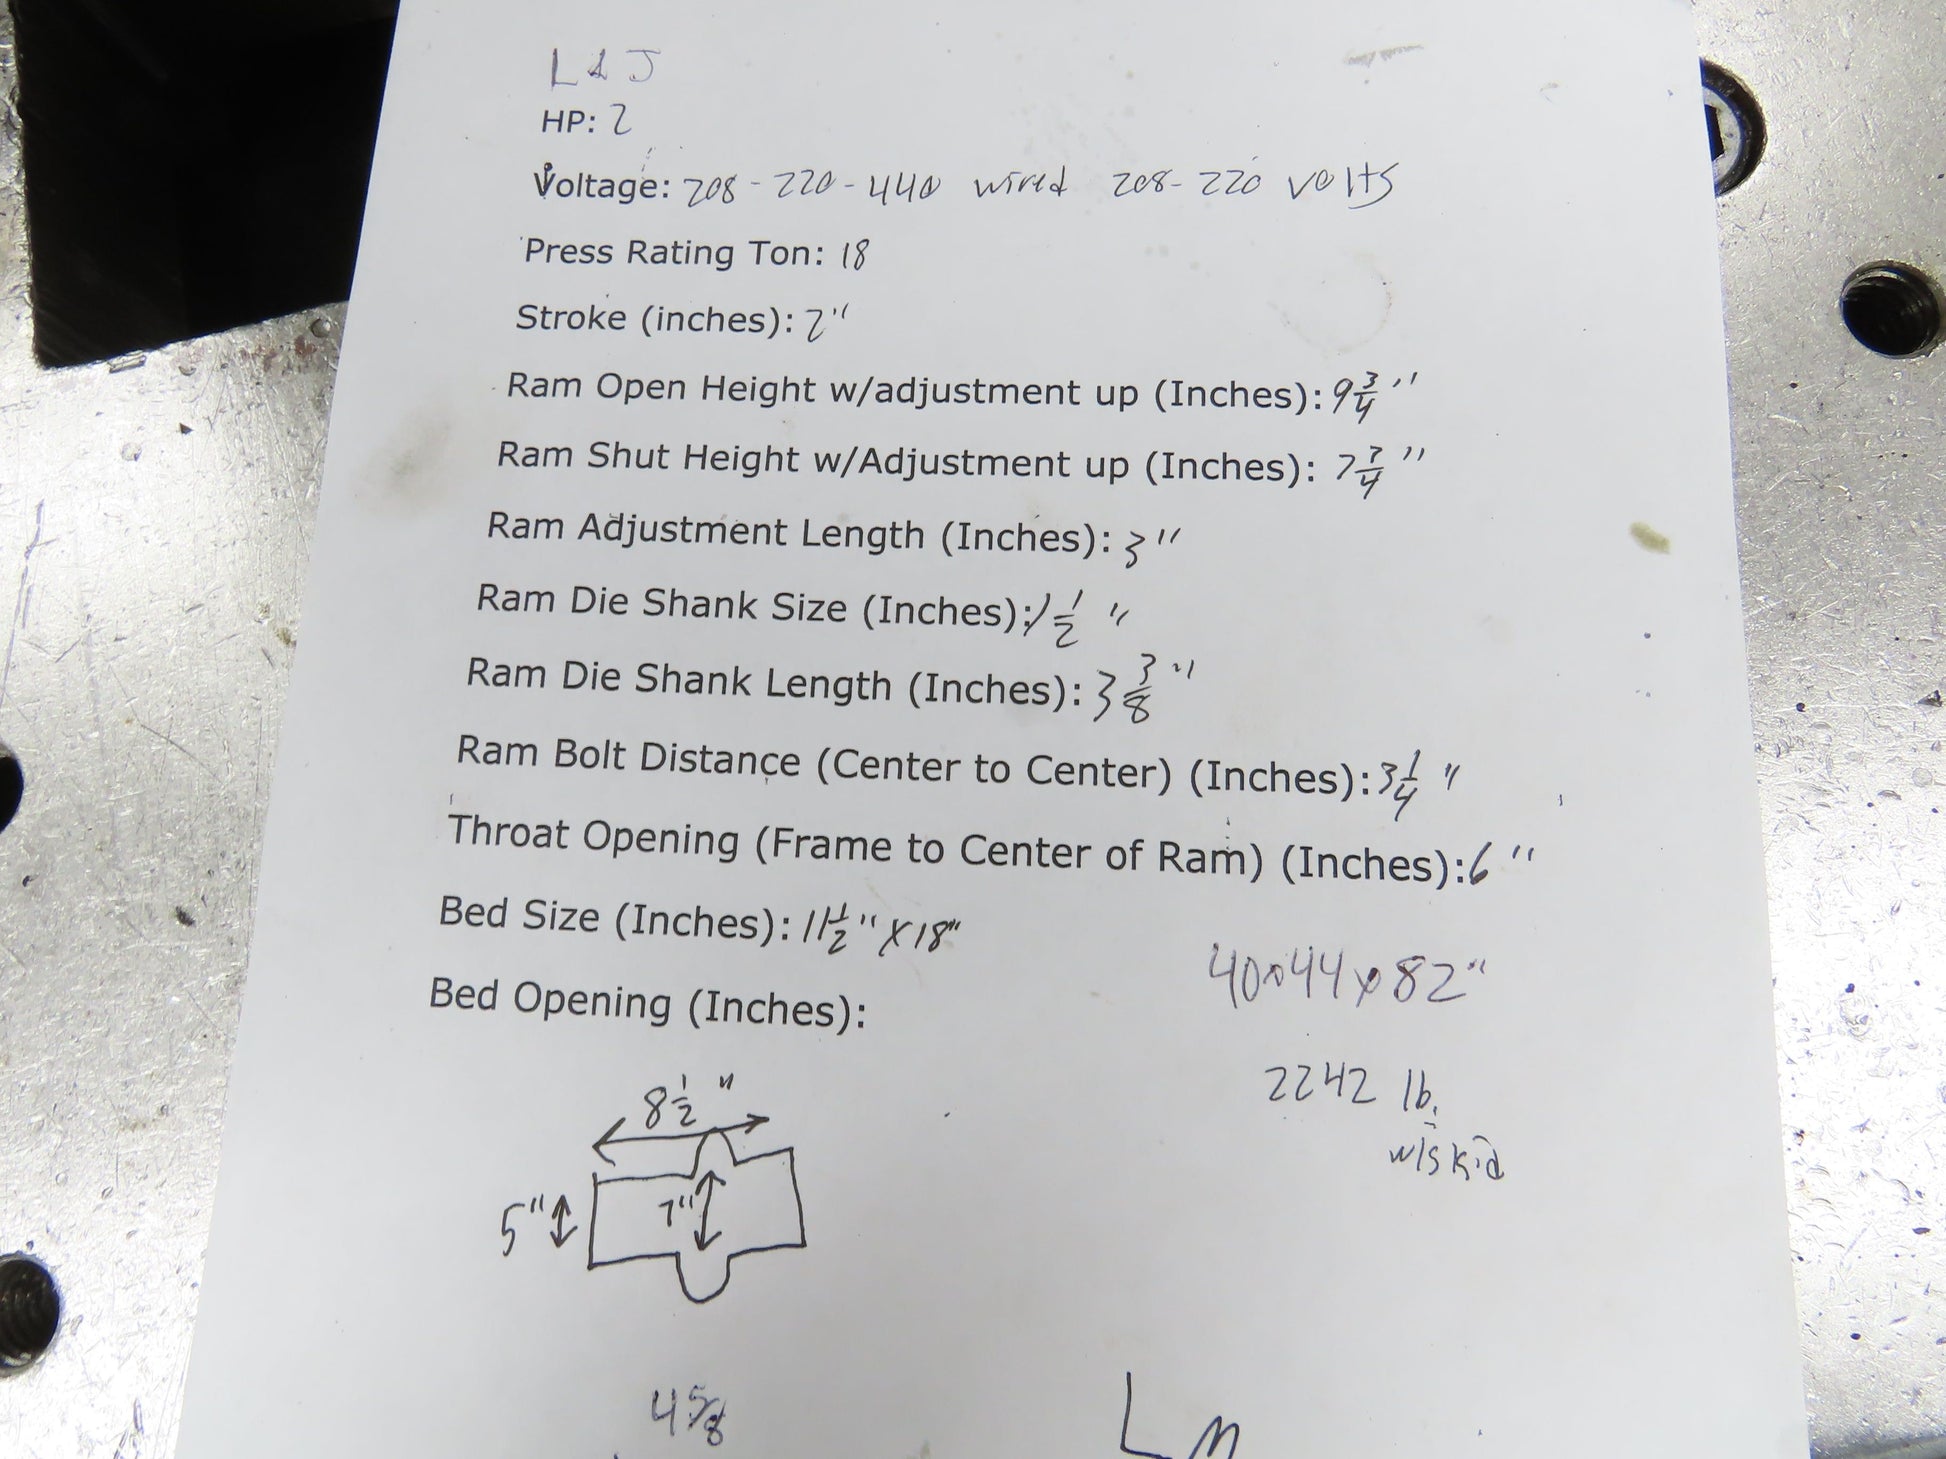 L & J
HP: 2
Voltage: 208 - 220 - 440 wired 208 - 220 volts
Press Rating Ton: 18
Stroke (inches): 2"
Ram Open Height w/adjustment up (Inches): 9 3/4"
Ram Shut Height w/Adjustment up (Inches): 7 3/4"
Ram Adjustment Length (Inches): 3"
Ram Die Shank Size (Inches): 1 1/2"
Ram Die Shank Length (Inches): 3 3/8"
Ram Bolt Distance (Center to Center) (Inches): 3 1/4"
Throat Opening (Frame to Center of Ram) (Inches): 6"
Bed Size (Inches): 11 1/2" X 18"
40x44x82"
Bed Opening (Inches):
2242 lb.
w/skid
8 1/2"
5"
7"
4 5/8